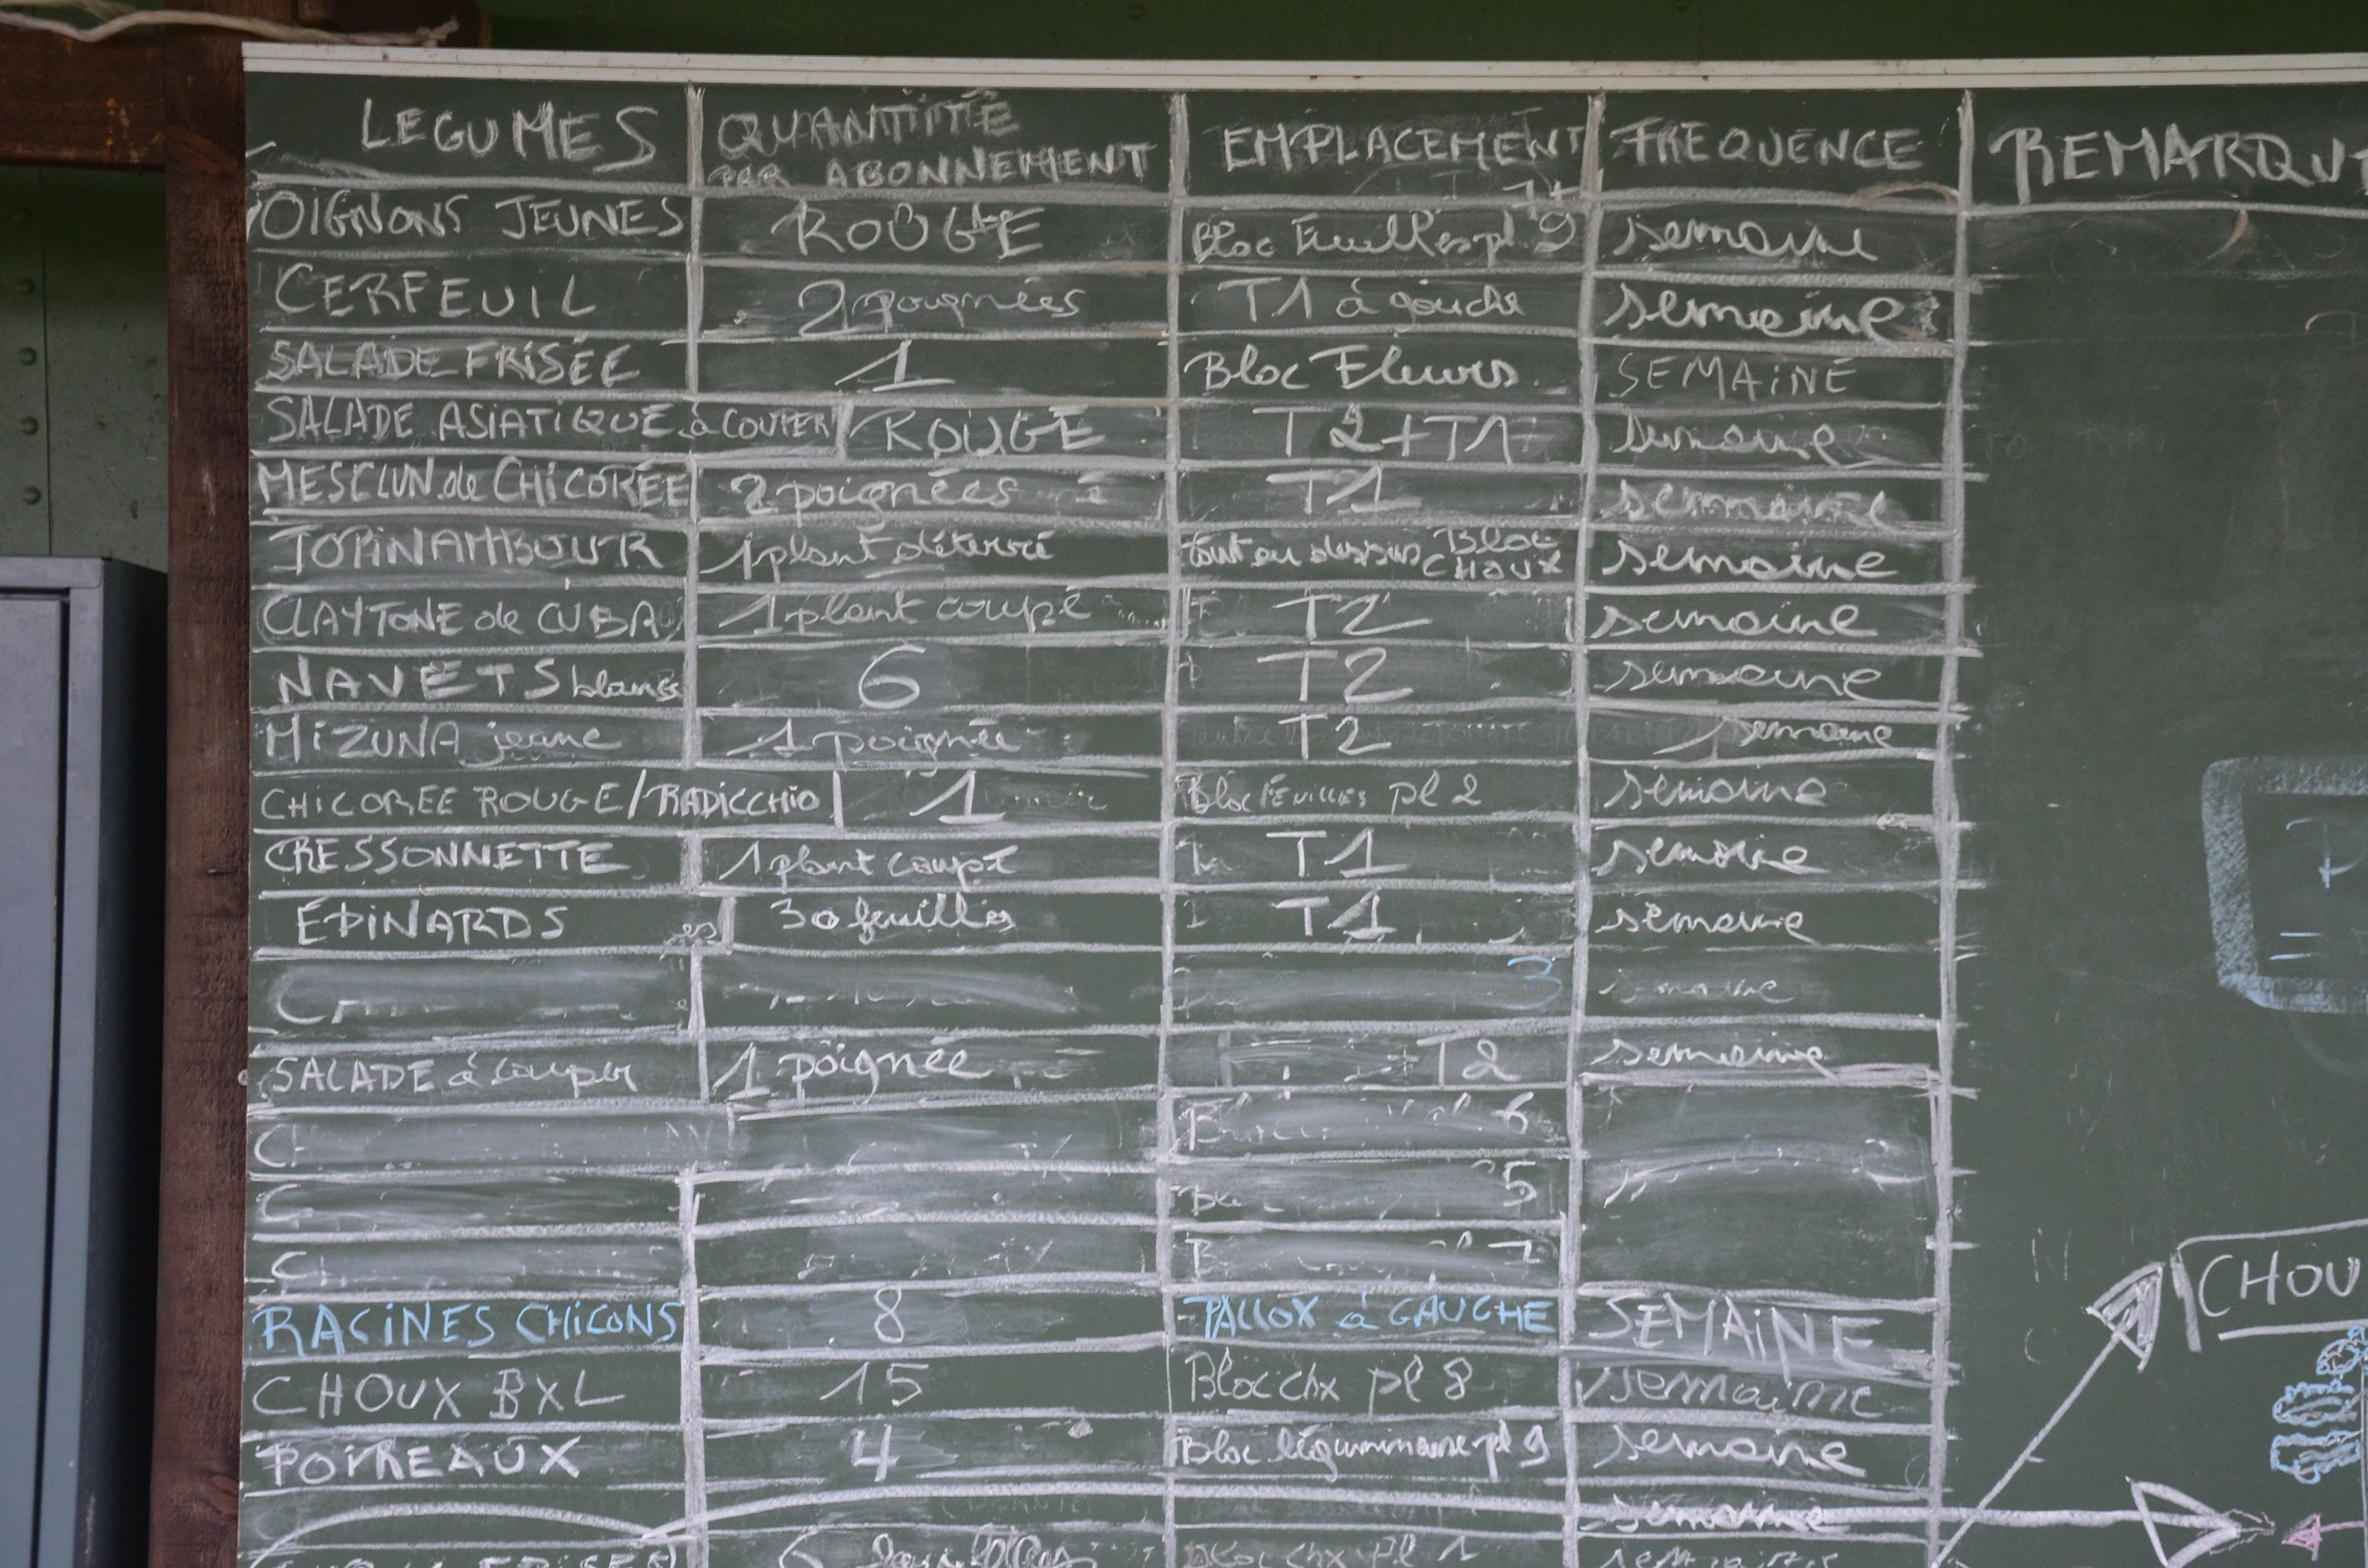 LEGUMES QUANTITÉ PAR ABONNEMENT EMPLACEMENT FREQUENCE REMARQU
OIGNONS JEUNES ROUGE Bloc Feuilles pl 9 semaine
CERFEUIL 2 poignées T1 à gauche semaine
SALADE FRISÉE 1 Bloc Fleurs SEMAINE
SALADE ASIATIQUE à COUPER ROUGE T2+T1 semaine
MESCLUN de CHICORÉE 2 poignées T1 semaine
TOPINAMBOUR 1 plant déterré tout au dessus Bloc CHOUX semaine
CLAYTONE de CUBA 1 plant coupé T2 semaine
NAVETS blancs 6 T2 semaine
MIZUNA jeune 1 poignée T2 semaine
CHICOREE ROUGE/RADICCHIO 1 Bloc FEUILLES pl 2 semaine
CRESSONNETTE 1 plant coupé T1 semaine
ÉPINARDS 30 feuilles T1 semaine
3 semaine
SALADE à couper 1 poignée T2 semaine
6
5
7
RACINES CHICONS 8 PALLOX à GAUCHE SEMAINE
CHOUX BXL 15 Bloc chx pl 8 semaine
CHOU
POIREAUX 4 Bloc légumineuse pl 9 semaine
semaine
6 Bloc chx pl 1